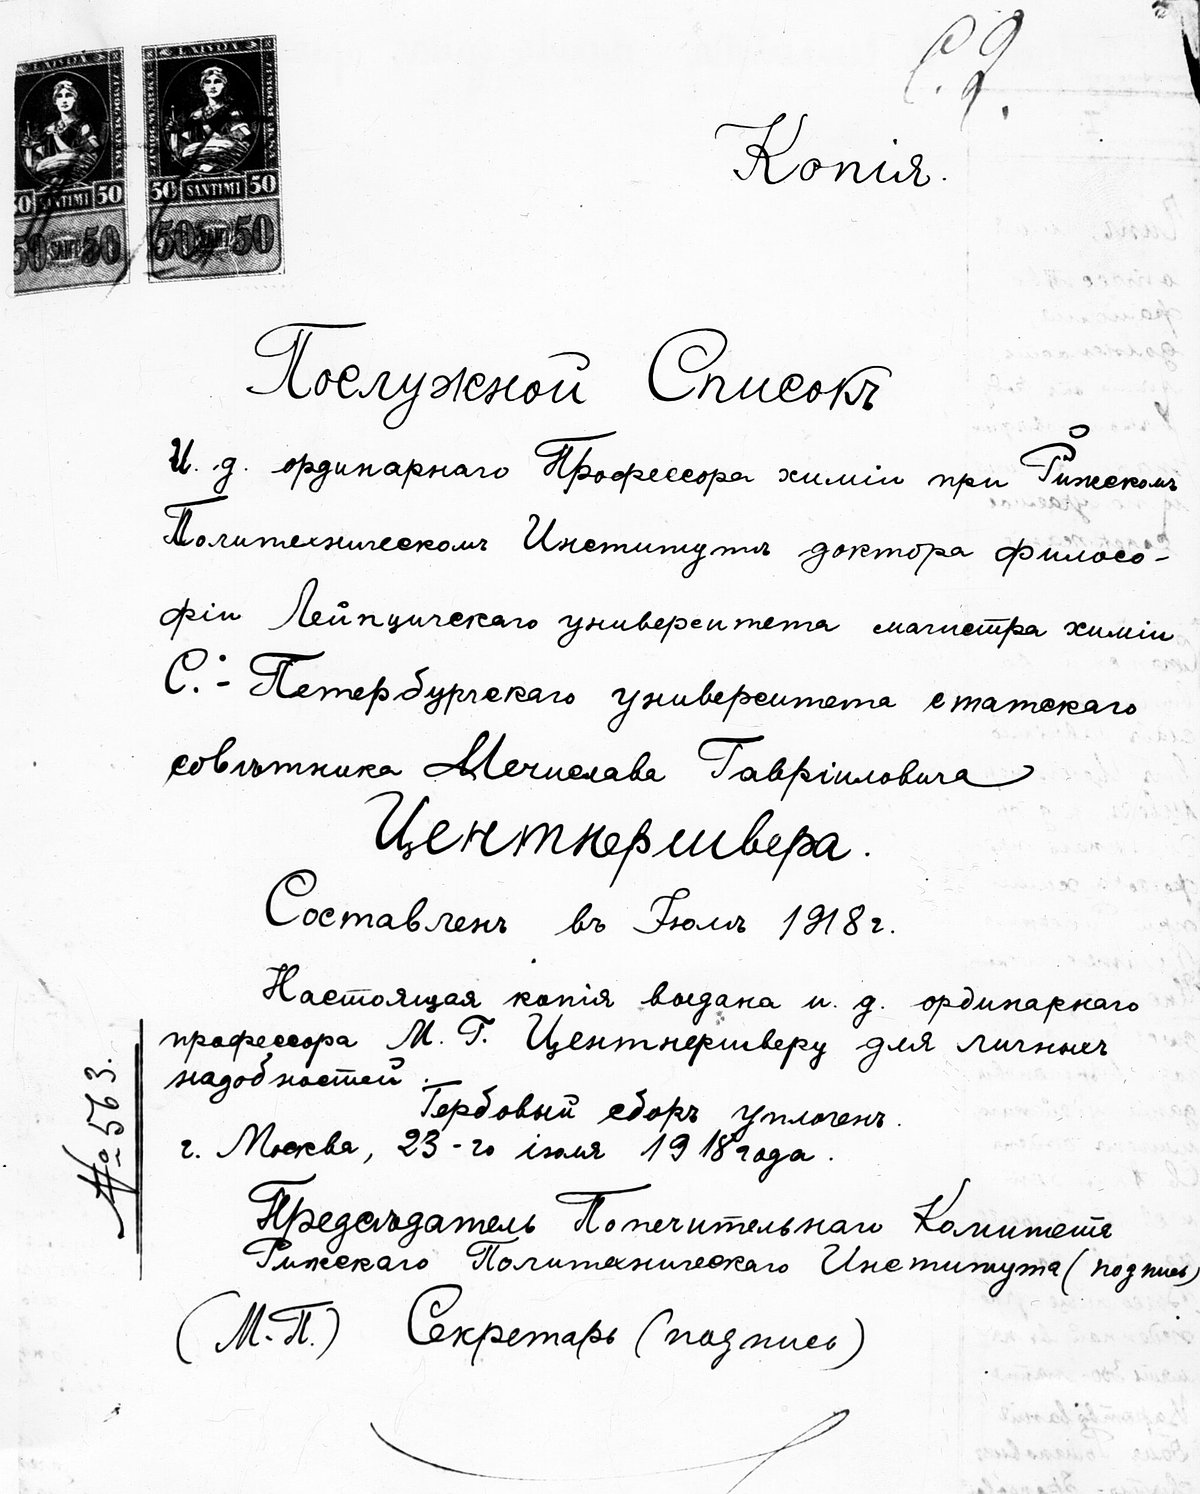 LATVIJA
LATVIJA
50 SANTIMI 50
50 SANTIMI 50
50 SANT 50
50 SANT 50
Копія.
Послужной Списокъ
И. д. ординарнаго Профессора химіи при Рижскомъ
Политехническомъ Институтѣ доктора филосо-
фіи Лейпцигскаго университета магистра химіи
С.-Петербургскаго университета статскаго
совѣтника Мечислава Гавріиловича
Центнершвера.
Составленъ въ Іюлѣ 1918 г.
Настоящая копія выдана и. д. ординарнаго
профессора М. Г. Центнершверу для личныхъ
надобностей.
Гербовый сборъ уплоченъ.
г. Москва, 23-го іюля 1918 года.
№ 563.
Предсѣдатель Попечительнаго Комитета
Рижскаго Политехническаго Института (подпись)
(М.П.) Секретарь (подпись)